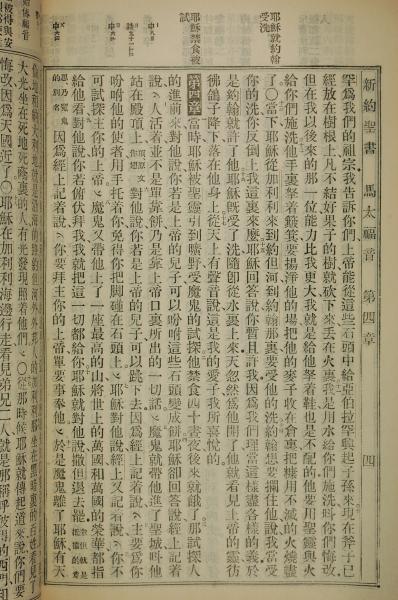 新約聖書 馬太福音 第四章 四
罕爲我們的祖宗我告訴你們上帝能從這些石頭中給亞伯拉罕興起子孫來現在斧子已
經放在樹根上凡不結好果子的樹就砍下來丟在火裏我是用水給你們施洗叫你們悔改
但在我以後來的那一位能力比我更大我就是給他努着鞋也是不配的他要用聖靈與火
給你們施洗他手裏拏着簸箕要揚淨他的場把他的麥子收在倉裏把糠用不滅的火燒盡
了〇當下耶穌從加利利來到約但河到約翰那裏要受他的洗約翰想要攔住他說我當受
你的洗你反倒上我這裏來麼耶穌回答說你暫且許我因爲我們理當這樣盡各樣的義於
是約翰就許了他耶穌旣受了洗隨卽從水裏上來天忽然爲他開了他就看見上帝的靈彷
彿鴿子降下落在他身上從天上有聲音說這是我的愛子我所喜悅的
第四章 當時耶穌被聖靈引到曠野受魔鬼的試探他禁食四十晝夜後來就餓了那試探人
的進前來對他說你若是上帝的兒子可以吩咐這些石頭變成餅耶穌卻回答說經上記着
說人活着並不是單靠餅乃是靠上帝口裏所出的一切話魔鬼就帶他進了聖城叫他
站在殿頂上 對他說你若是上帝的兒子可以跳下去因爲經上記着說主要爲你
吩咐他的使者用手托着你免得你把脚碰在石頭上耶穌對他說經上又記着說你不
可試探主你的上帝魔鬼又帶他上了一座最高的山將世上的萬國和萬國的榮華都指
給他看對他說你若俯伏拜我我就把這一切都給你耶穌就對他說撒但退去罷
因爲經上記着說你要拜主你的上帝單要事奉他於是魔鬼離了耶穌有天
大光坐在死地死蔭裏的人有光發現照着他們〇從那時候耶穌就傳起道來說你們要
悔改因爲天國近了〇耶穌在加利利海邊行走看見弟兄二人就是那稱呼彼得的西門
耶穌就約翰
受洗
耶穌禁食被
試